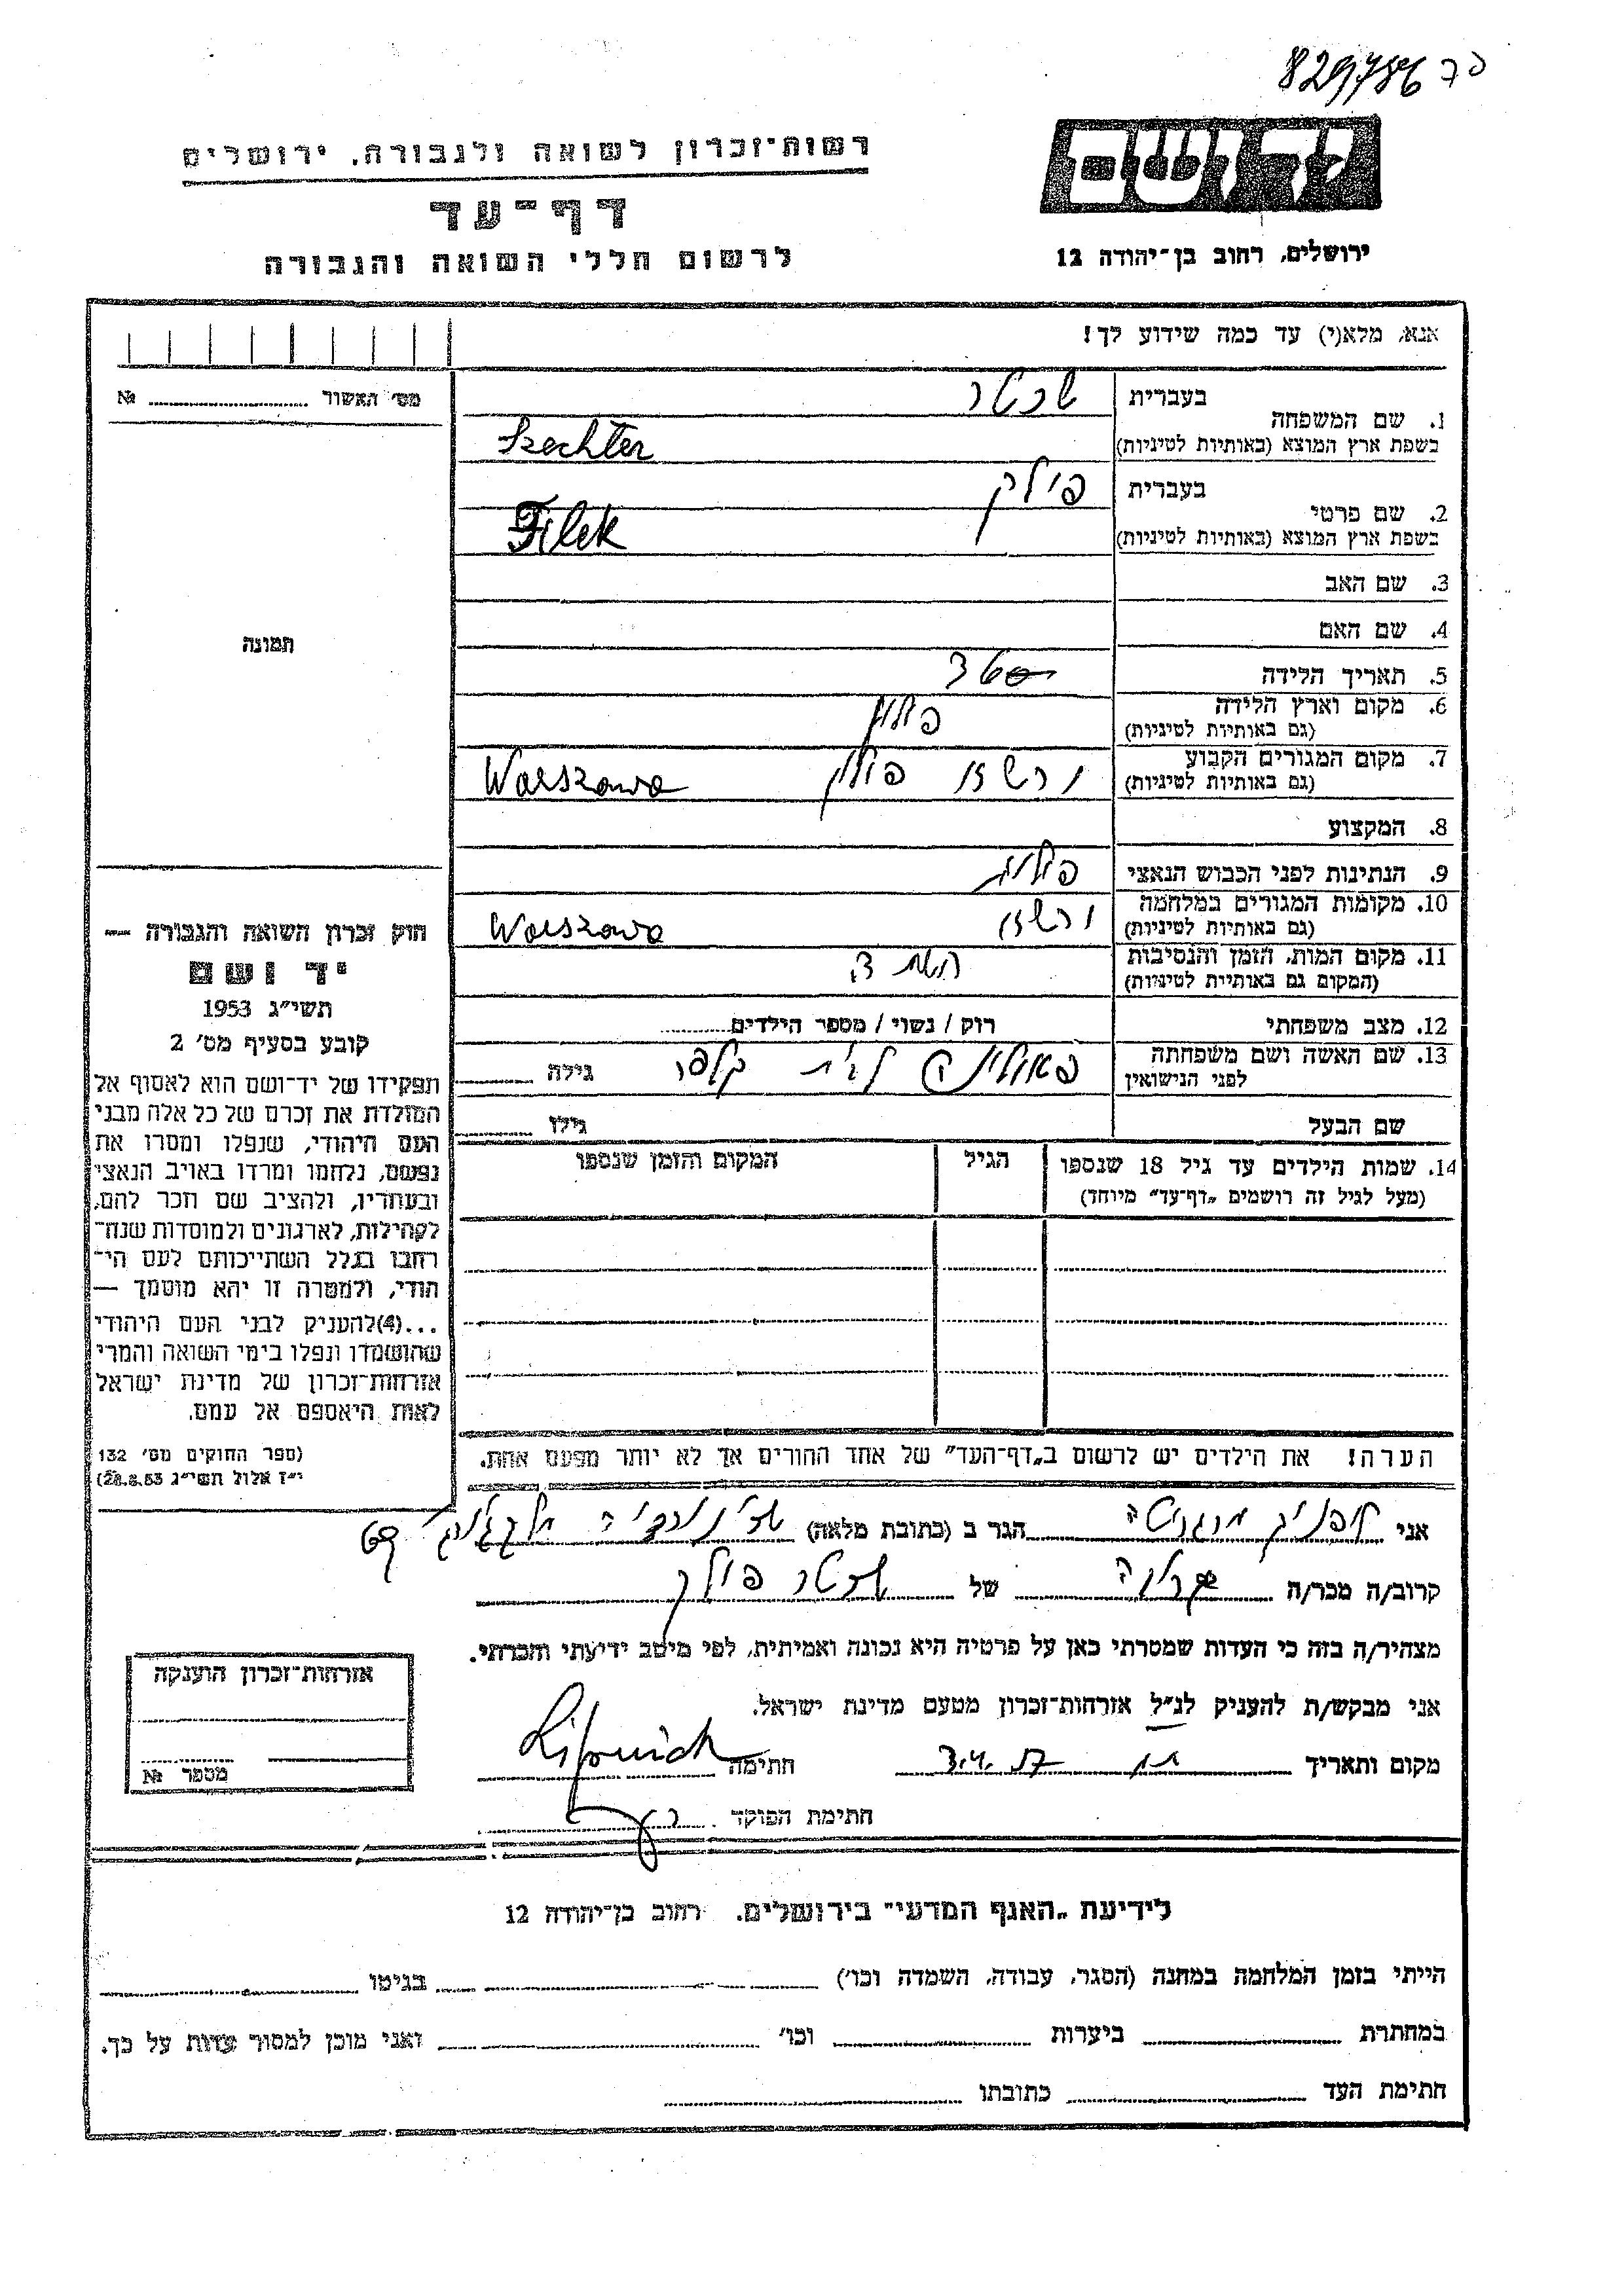 829786 כד
יד ושם
רשות־זכרון לשואה ולגבורה, ירושלים
דף־עד
לרשום חללי השואה והגבורה
ירושלים, רחוב בן־יהודה 12
אנא, מלא(י) עד כמה שידוע לך!
מס' האשור № 
1. שם המשפחה
בעברית שכטר
בשפת ארץ המוצא (באותיות לטיניות) Szechter
2. שם פרטי
בעברית פילק
בשפת ארץ המוצא (באותיות לטיניות) Filek
3. שם האב
4. שם האם
5. תאריך הלידה
6. מקום וארץ הלידה פולין
(גם באותיות לטיניות)
7. מקום המגורים הקבוע ורשה פולין Warszawa
(גם באותיות לטיניות)
8. המקצוע
9. הנתינות לפני הכבוש הנאצי פולנית
10. מקומות המגורים במלחמה ורשה Warszawa
(גם באותיות לטיניות)
11. מקום המות, הזמן והנסיבות
(המקום גם באותיות לטיניות)
12. מצב משפחתי רוק / נשוי / מספר הילדים
13. שם האשה ושם משפחתה פאולינה לבית גילה
לפני הנישואין
שם הבעל גילו
14. שמות הילדים עד גיל 18 שנספו הגיל המקום והזמן שנספו
(מעל לגיל זה רושמים „דף־עד" מיוחד)
הערה! את הילדים יש לרשום ב„דף־העד" של אחד ההורים אך לא יותר מפעם אחת.
תמונה
חוק זכרון השואה והגבורה —
יד ושם
תשי"ג 1953
קובע בסעיף מס' 2
תפקידו של יד־ושם הוא לאסוף אל
המולדת את זכרם של כל אלה מבני
העם היהודי, שנפלו ומסרו את
נפשם, נלחמו ומרדו באויב הנאצי
ובעוזריו, ולהציב שם וזכר להם,
לקהילות, לארגונים ולמוסדות שנה־
רחבו בגלל השתייכותם לעם הי־
הודי, ולמטרה זו יהא מוסמך —
...(4)להעניק לבני העם היהודי
שהושמדו ונפלו בימי השואה והמרי
אזרחות־זכרון של מדינת ישראל
לאות היאספם אל עמם.
(ספר החוקים מס' 132
י"ז אלול תשי"ג 28.8.53)
אני ליפוביק הגר ב (כתובת מלאה)
קרוב/ה מכר/ה של שכטר פילק
מצהיר/ה בזה כי העדות שמסרתי כאן על פרטיה היא נכונה ואמיתית, לפי מיטב ידיעתי והכרתי.
אני מבקש/ת להעניק לנ"ל אזרחות־זכרון מטעם מדינת ישראל.
מקום ותאריך 3.4.57 חתימה
חתימת הפוקד
אזרחות־זכרון הוענקה
מספר №
לידיעת „האגף המדעי" בירושלים. רחוב בן־יהודה 12
הייתי בזמן המלחמה במחנה (הסגר, עבודה, השמדה וכו') בגיטו
במחתרת ביערות וכו' ואני מוכן למסור עדות על כך.
חתימת העד כתובתו